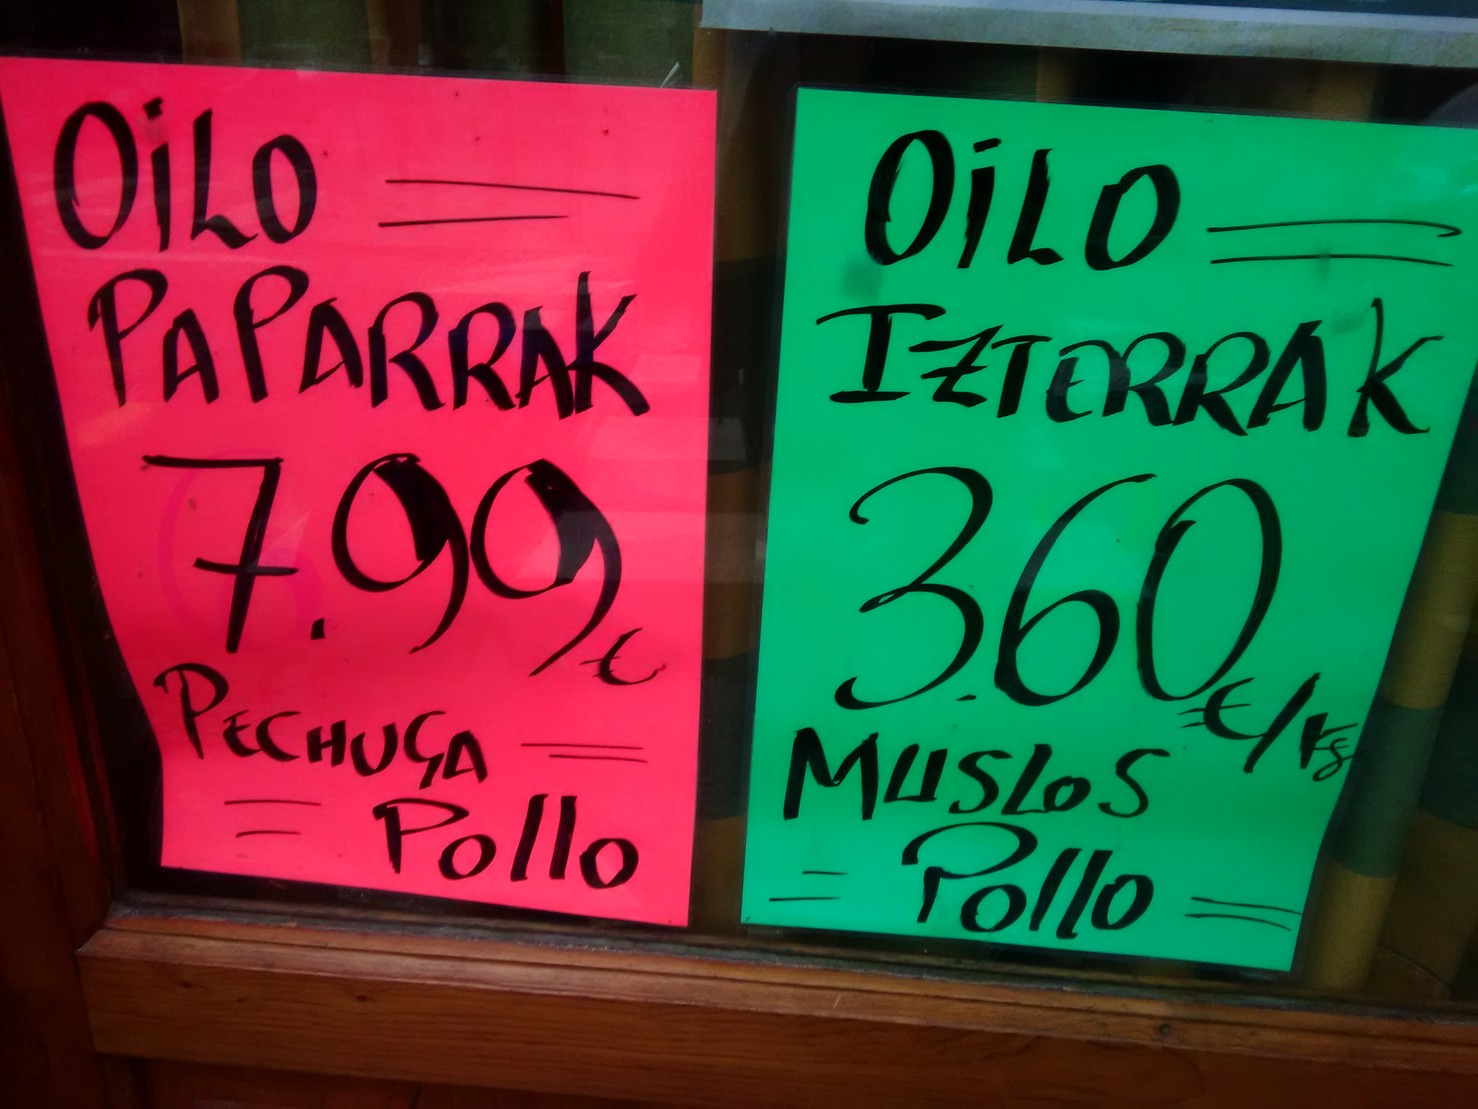 OiLO
PAPARRAK
7.99 €
PECHUGA
Pollo
OiLO
IZTERRAK
3.60 €/Kg
MUSLOS
Pollo